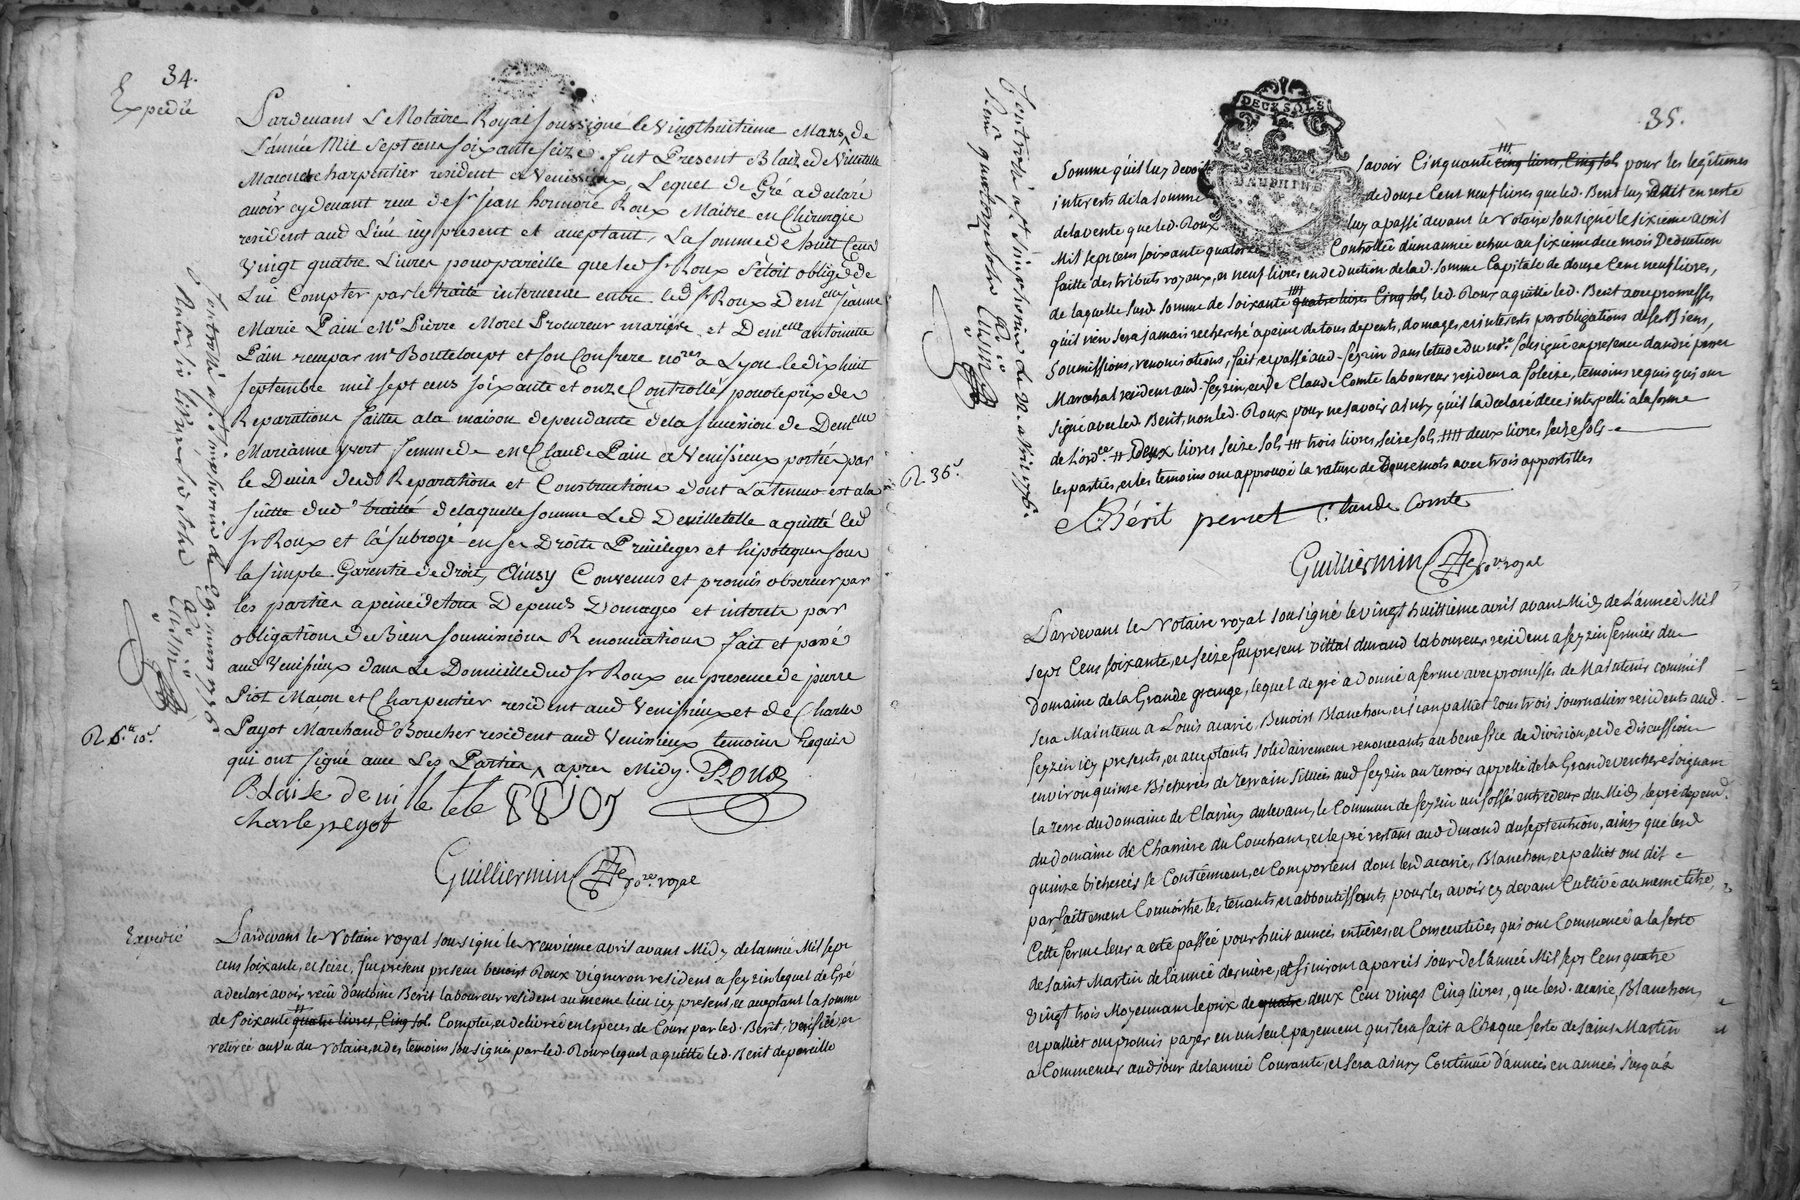 34.
Expedié
Pardevant Le Notaire Royal soussigné le vingthuitieme Mars de
L'année Mil sept cens soixante seize. fut Present Blaize de Villetelle
Macon charpentier résident a Venissieux, Lequel de Gré a declaré
avoir cy devant reçu de Sr jean honnoré Roux Maitre en Chirurgie
resident aud Lieu icy present et aceptant, La somme de huit Cens
Vingt quatre Livres pour pareille que led Sr Roux s'étoit obligé de
Lui Compter par le traité intervenu entre led Sr Roux Demelle jeanne
Marie Pain Me Pierre Morel Procureur mariés, et Demelle antoinette
Pain reçu par me Bouteloupt et son Confrere nores a Lyon le dix huit
septembre mil sept cens soixante et onze Controllés pour le prix des
Reparations faittes a la maison dependante de la succession de Demelle
Marianne yvert femme de me Claude Pain a Venissieux portées par
le Devis desd Reparations et Constructions dont La teneur est a la
suitte dud traitté de laquelle somme Led Devilletelle a quitté led
Sr Roux et l'a subrogé en ses Droits Privileges et hipoteques sous
la simple Garentie de droit, Ainsy Convenus et promis observer par
les parties a peine de tous Depends Domages et interets par
obligations de Biens soumissions Renonciations fait et passé
aud Venissieux dans Le Domicille dud Sr Roux en presence de pierre
Piot Macon et Charpentier resident aud Venissieux et de Charles
Payot Marchand Boucher resident aud Venissieux temoins Requis
qui ont signé avec Les Parties, apres Midy. Roux
Blaise de vi lle tele PPiot
Charle pegot
Guilliermin nore. royal
Controllé a St simphorin le
1776
Expedié
Pardevant le Notaire royal soussigné le neuvieme avril avant Midy de lannée Mil sept
cens soixante, et seize, fut present present benoist Roux vigneron resident a feyzin lequel de Gré
a declaré avoir reçû d'antoine Berit laboureur resident au meme lieu icy present, et aceptant la somme
de soixante quatre livres, Cinq sol Comptée, et delivrée en Especes de Cours par led. Berit, verifiée, et
retirée au vu du Notaire, et des temoins soussignés par led. Roux lequel a quitté led. Berit de pareille
35.
DEUX SOLS
DAUPHINE
Somme qu'il luy devoit savoir Cinquante cinq livres Cinq sol pour les legitimes
interets de la somme de douse Cens neuf livres que led. Berit luy doit en reste
de la vente que led. Roux luy a passé devant le Notaire soussigné le sixieme avril
Mil sept cens soixante quatorze Controllée d'une année echue au sixieme de ce mois Deduction
faitte des tributs royaux, et neuf livres en deduction de lad. somme Capitale de douse Cens neuf livres,
de laquelle susd. somme de soixante quatre livres Cinq sol, led. Roux a quitté led. Berit avec promesses
qu'il n'en sera jamais recherché a peine de tous depents, domages, et interets par obligations de ses Biens,
soumissions, renonciations, fait et passé aud. feyzin dans l'etude du nore. soussigné en presence d'andré perret
Marechal resident aud. feyzin, et de Claude Comte laboureur resident a soleize, temoins requis qui ont
signé avec led. Berit, non led. Roux pour ne savoir ainsy qu'il l'a declaré de ce interpellé a la forme
de l'ordce. # Deux livres seize sols ### trois livres, seize sols, #### deux livres seize sols
les parties, et les temoins ont approuvé la rature de Douse mots avec trois apportilles
A. Bérit perret Claude Comte
Guilliermin nore royal
R. 36s
Controllé a St simphorin le 22. avril 1776.
Reçu quatorze sols
Pardevant le Notaire royal soussigné le vingt huittieme avril avant Midy de L'année Mil
sept Cens soixante, et seize fut present vittal durand laboureur resident a feyzin fermier du
domaine de la Grande grange, lequel de gré a donné a ferme avec promesses de Maintenir comm'il
sera Maintenu a Louis acarie, Benoist Blanchon, et jean palliet tous trois journaliers residents aud.
feyzin icy presents, et aceptants solidairement renonceants au benefice de division, et de discussion
environ quinze Bicherées de terrain situées aud feyzin au terroir appellé de la Grande verchere joignant
la terre du domaine de Clavin du levant, le Commun de feyzin un fossé entre deux du Midy, le pré depend.
du domaine de Charriere du Couchant, et le pré restant aud durand du septentrion, ainsy que lesd
quinze bicherées se Contiennent, et Comportent dont lesd acarie, Blanchon, et palliet ont dit
parfaittement Connoistre les tenants, et abboutissants pour les avoir cy devant Cultivé au meme titre,
Cette ferme leur a esté passée pour huit années entieres, et Consecutives qui ont Commencé a la feste
de saint Martin de l'année derniere, et finiront a pareil jour de l'année Mil sept Cens quatre
vingt trois Moyennant le prix de quatre deux Cens vingt Cinq livres, que lesd. acarie, Blanchon,
et palliet ont promis payer en un seul payement qui sera fait a Chaque feste de saint Martin
a Commencer aud jour de lannée Courante, et sera ainsy Continué d'années en années jusqu'a